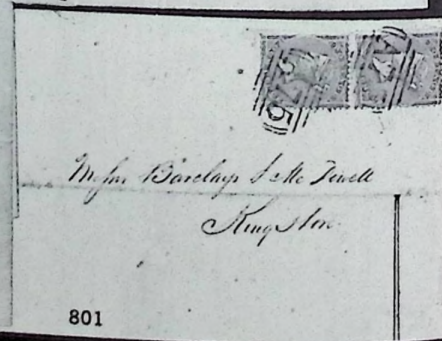 A75
A
Messrs Barclays & McDowell
Kingston
801